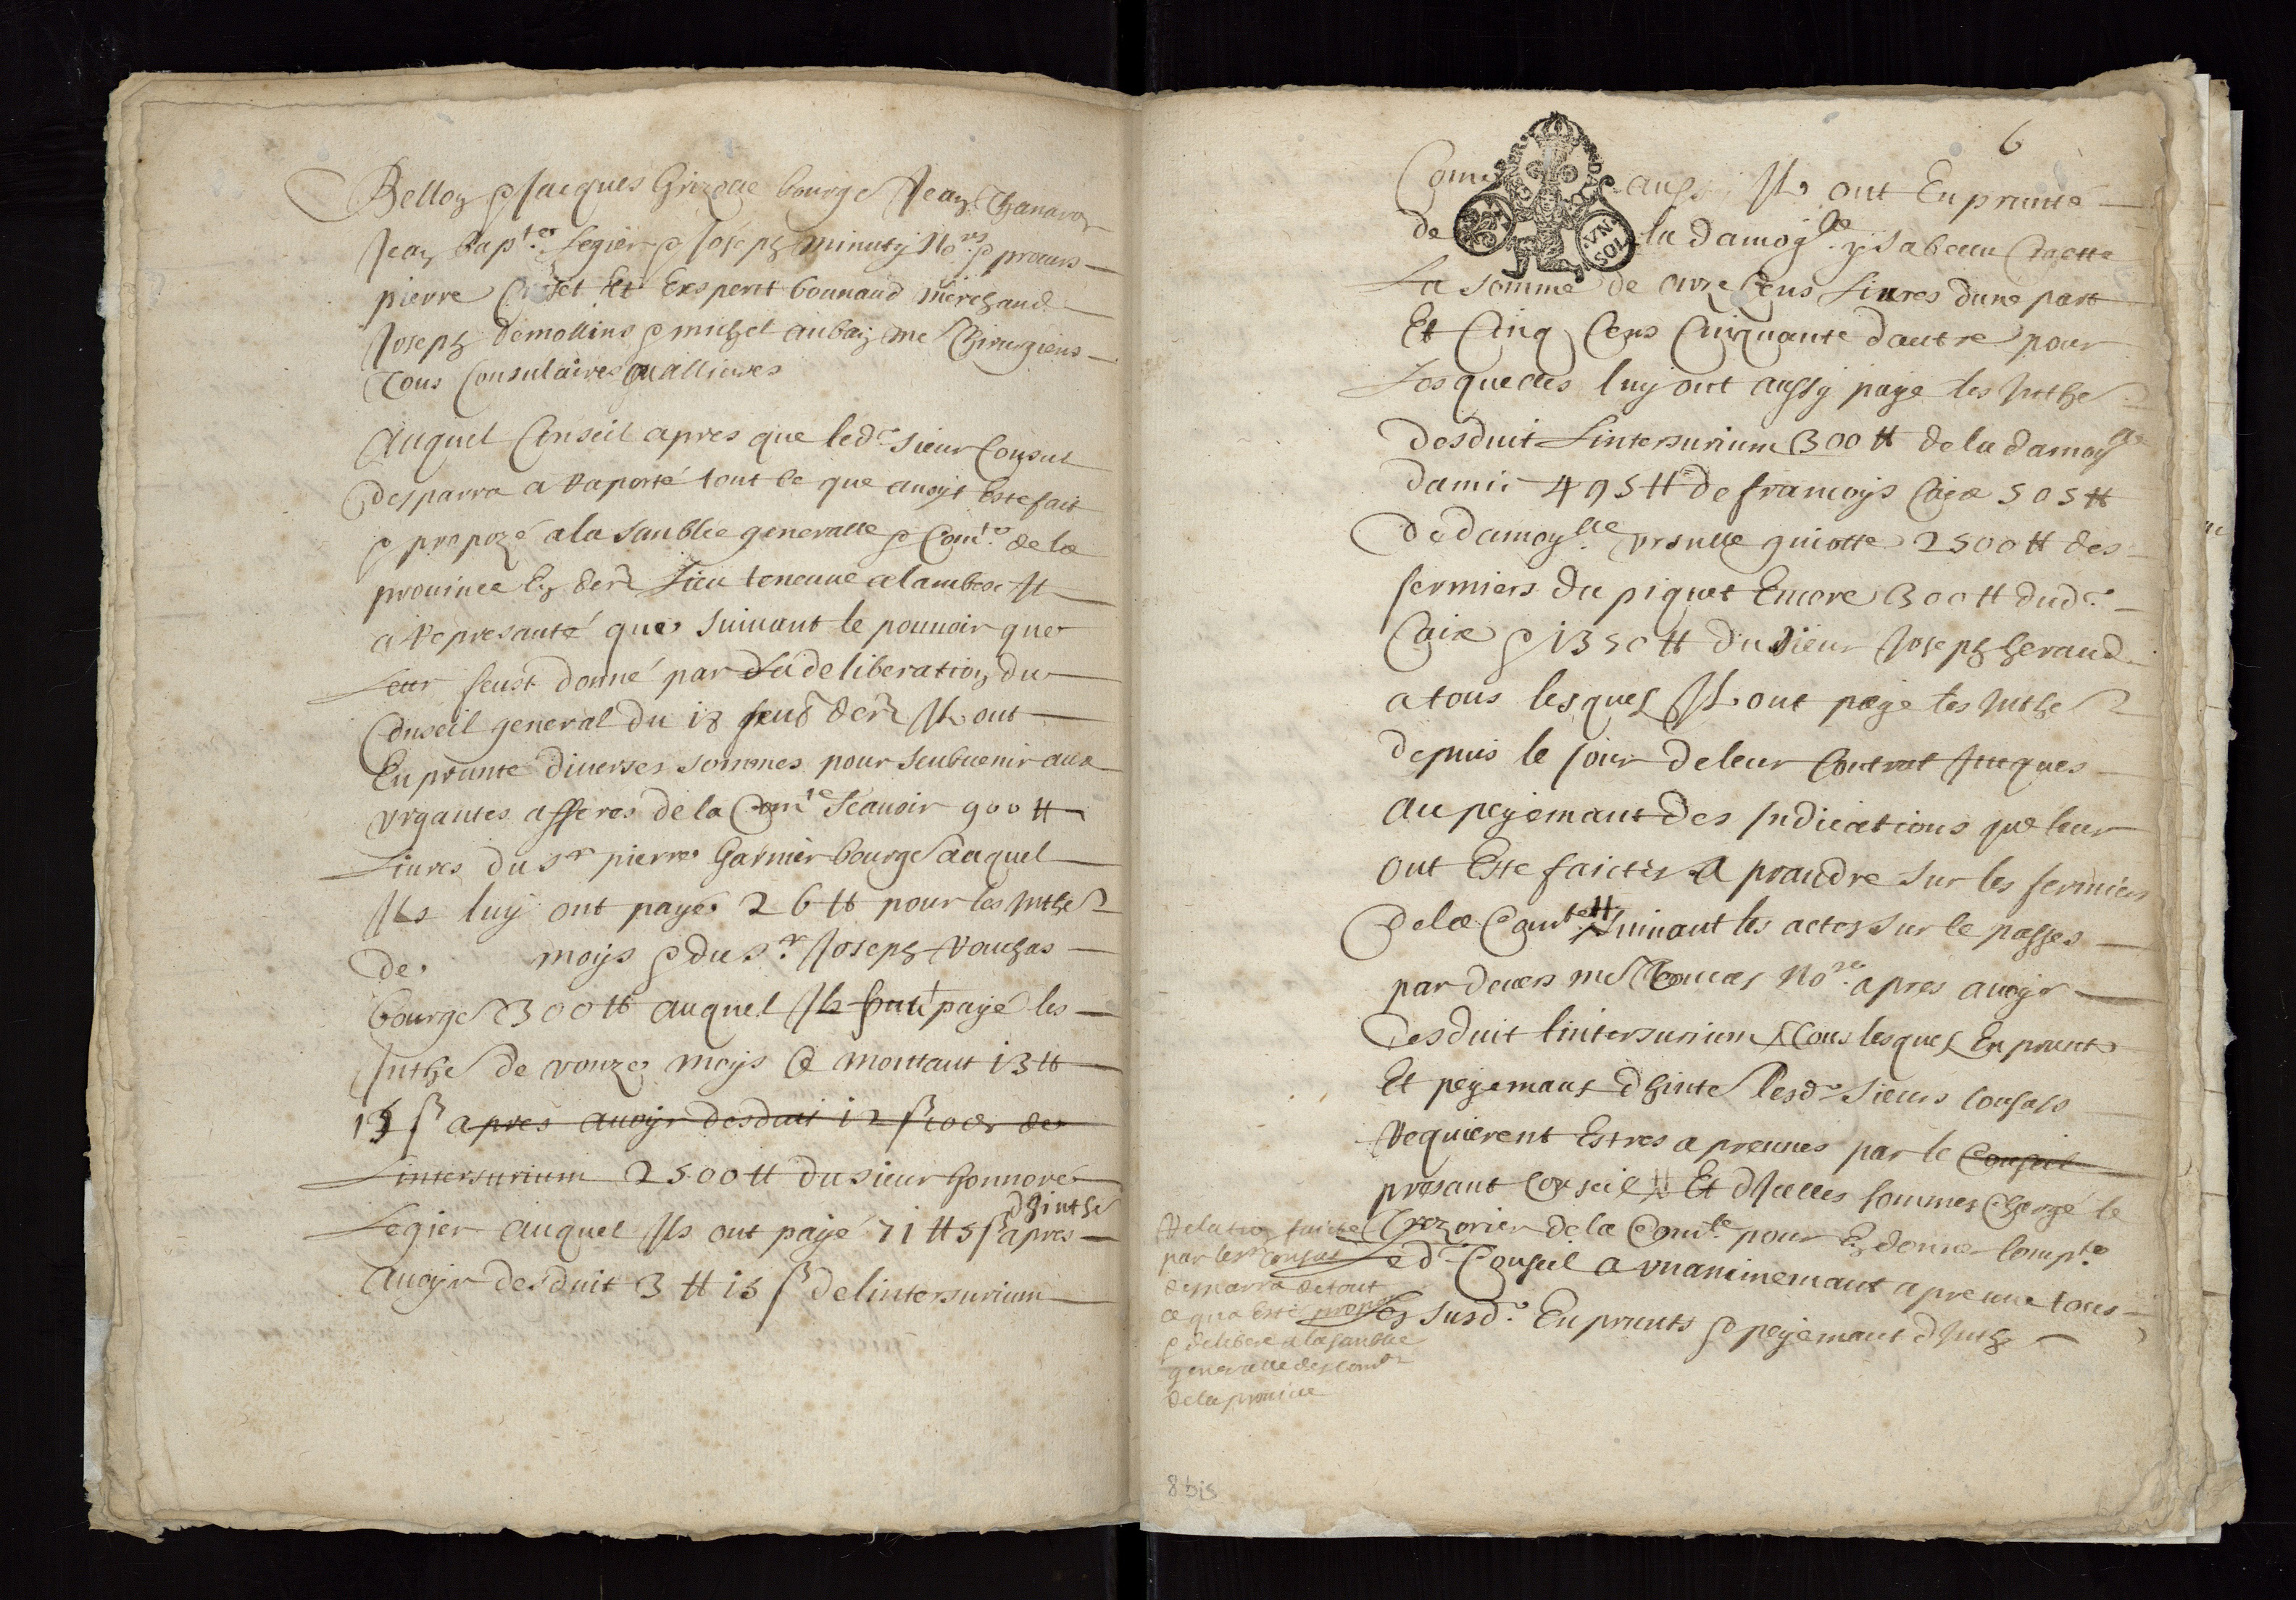 Belloy & Jacques Grizolle bourgs Jean Chanaron
Jean bap.te Legier & Joseph minuty no.res & procurs
pierre Crozet Et Exsperit bounaud merchand
Joseph demollins & michel aubain me Chirurgiens
Tous Consulaires qualliures
Auquel Conseil apres que led.e sieur Consul
desparra a raporté tout ce que auoyt Este fait
& propozé a la sanblee generalle & Com.te de la
prouince En der Lieu teneue a lambesc Il
a represanté que suiuant le pouuoir que
Leur feust donné par La deliberation du
Conseil general du 18 feu der Ils ont
Enprunte diuerses sommes pour seubuenir aux
vrgantes afferes de la Com.te Scauoir 900 tt
Liures du Sr pierre Garnier bourgs auquel
Ils luy ont payé 26 tt pour les Inthe
de moys & du Sr Joseph rouchas
bourgs 300 tt auquel Ils ont payé les
Inthe de vonze moys Ce montant 13 tt
15 s apres auoyr desduit 12 s de
Lintersurium 2500 tt du sieur honnoré
dhinthe
Legier auquel Ils ont payé 71 tt 5 s apres
auoyr desduit 3 tt 15 s de lintersurium
6
Comme aussy Ils ont Enprunté
de la damoy.lle ysabeau
La somme de onze Cens Liures dune part
Et Cinq Cens Cinquante dautre pour
Lesquelles luy ont aussy paye les Inthe
desduit Lintersurium 300 tt de la damoy.lle
damic 495 tt de francoys Caix 505 tt
De damoy.lle vrsulle guiotte 2500 tt des
fermiers du piquet Encore 300 tt dud.e
Caix & 1350 tt du sieur Joseph Geraud
a tous lesquels Ils ont paye les Inthe
depuis le Jour de leur Contrat Jusques
au peyemant des Indications que leur
ont Este faictes a prandre sur les fermiers
de la Com.te suiuant les actes sur le passes
par deuers me no.re apres auoyr
desduit lintersurium tous lesquels Enprunts
Et peyemant dhinte lesd.e sieurs Consuls
requierent Estres aprouues par le Conseil
presant Conseil Et dIcelles sommes Charge le
Trezorier de la Com.te pour En donner Comp.te
Led.e Conseil a vnanimemant aprouue tous
Les susd.e Enprunts & peyemant dInth
Relation faicte
par le sr Consul
desparra de tout
ce qua Este propoze
& delibere a la sanblee
generalle des Com.tes
de la prouince
8 bis